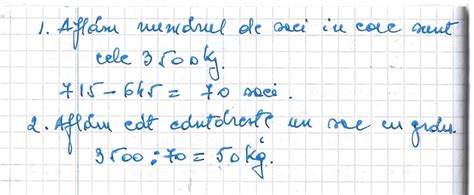 1. Aflăm numărul de saci în care sunt
cele 3500 kg.
715 - 645 = 70 saci.
2. Aflăm cât cântărește un sac cu grâu.
3500 : 70 = 50 kg.